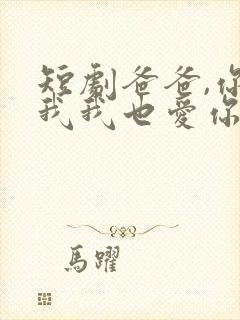 短劇爸爸,你
我我也愛你
馬躍